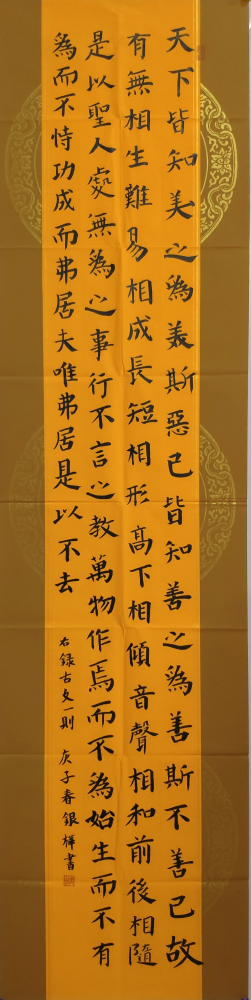 天下皆知美之為美斯惡已皆知善之為善斯不善已故
有無相生難易相成長短相形高下相傾音聲相和前後相隨
是以聖人處無為之事行不言之教萬物作焉而不為始生而不有
為而不恃功成而弗居夫唯弗居是以不去
右錄古文一則 庚子春銀樺書